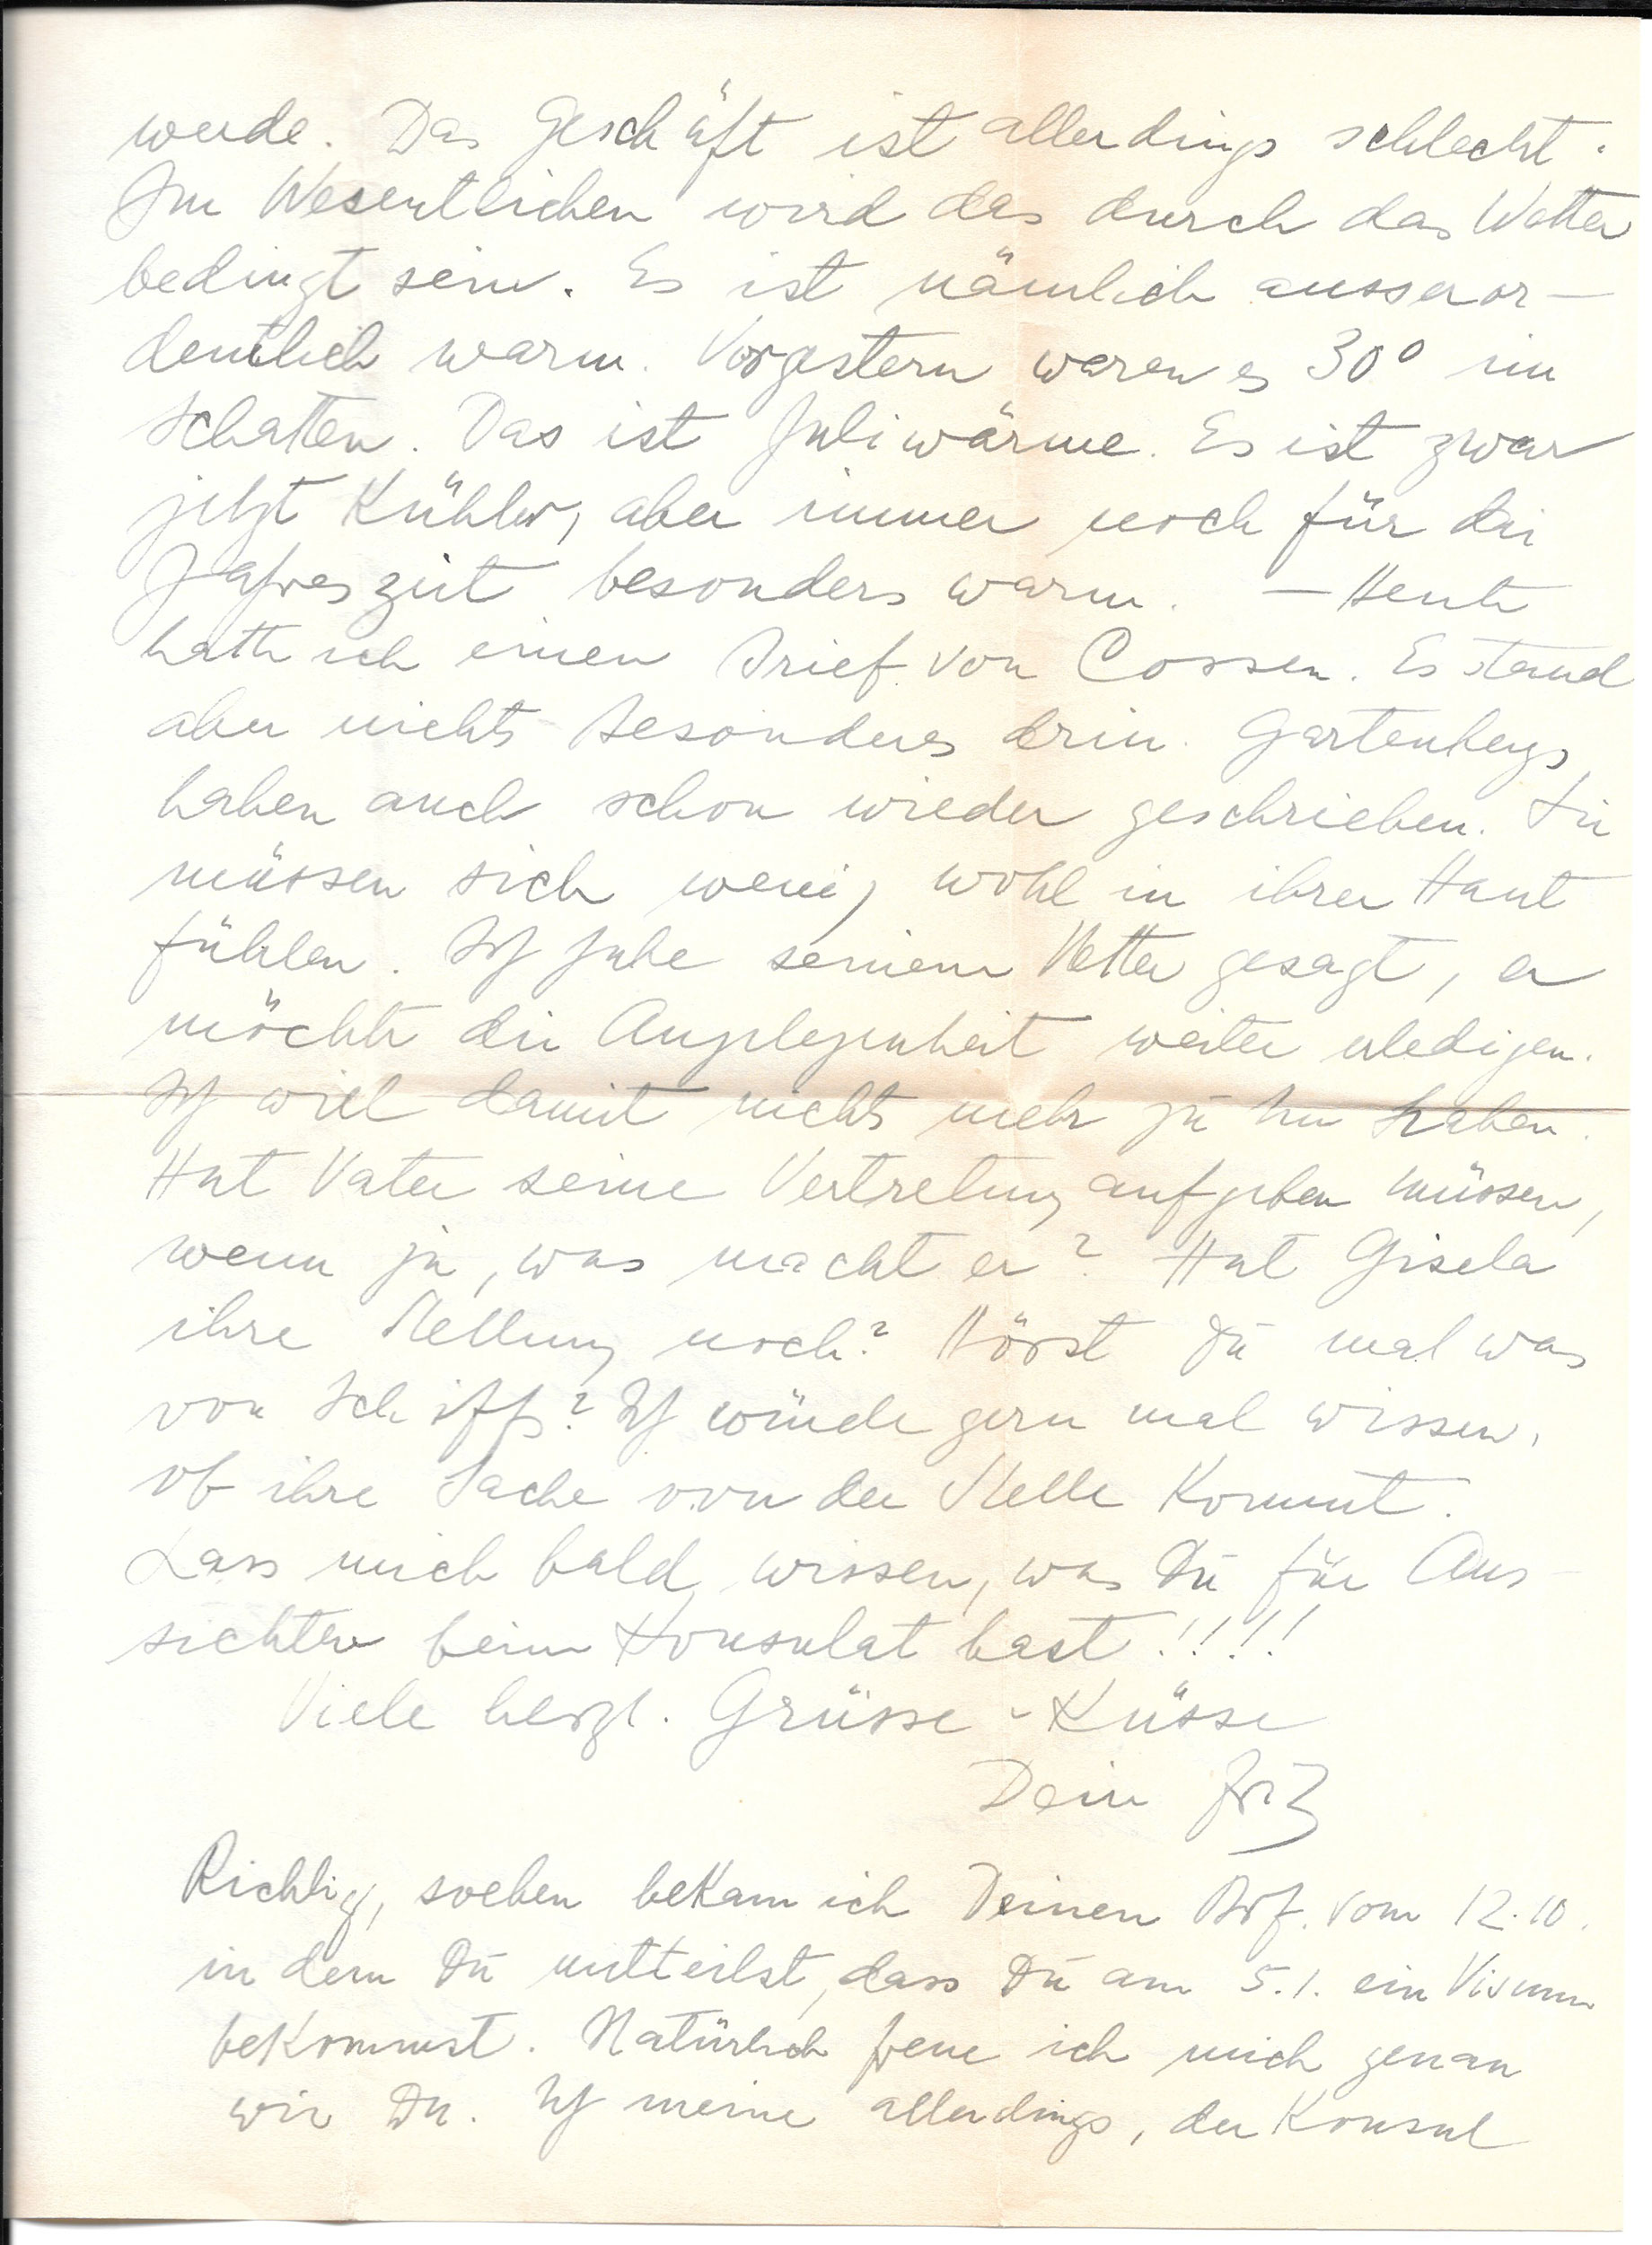 werde. Das Geschäft ist allerdings schlecht.
Im Wesentlichen wird das durch das Wetter
bedingt sein. Es ist nämlich ausseror-
dentlich warm. Vorgestern waren es 30° im
Schatten. Das ist Juliwärme. Es ist zwar
jetzt kühler, aber immer noch für die
Jahreszeit besonders warm. - Heute
hatte ich einen Brief von Cossen. Es stand
aber nichts Besonderes drin. Gartenbergs
haben auch schon wieder geschrieben. Sie
müssen sich wenig wohl in ihrer Haut
fühlen. Ich habe seinem Vetter gesagt, er
möchte die Angelegenheit weiter erledigen.
Ich will damit nichts mehr zu tun haben.
Hat Vater seine Vertretung aufgeben müssen,
wenn ja, was macht er? Hat Gisela
ihre Stellung noch? Hörst Du mal was
von Schiffs? Ich würde gern mal wissen,
ob ihre Sache von der Stelle kommt.
Lass mich bald wissen, was Du für Aus-
sichten beim Konsulat hast!!!!
Viele herzl. Grüsse - Küsse
Dein Fritz
Richtig, soeben bekam ich Deinen Brf. vom 12.10.
in dem Du mitteilst, dass Du am 5.1. ein Visum
bekommst. Natürlich freue ich mich genau
wie Du. Ich meine allerdings, der Konsul